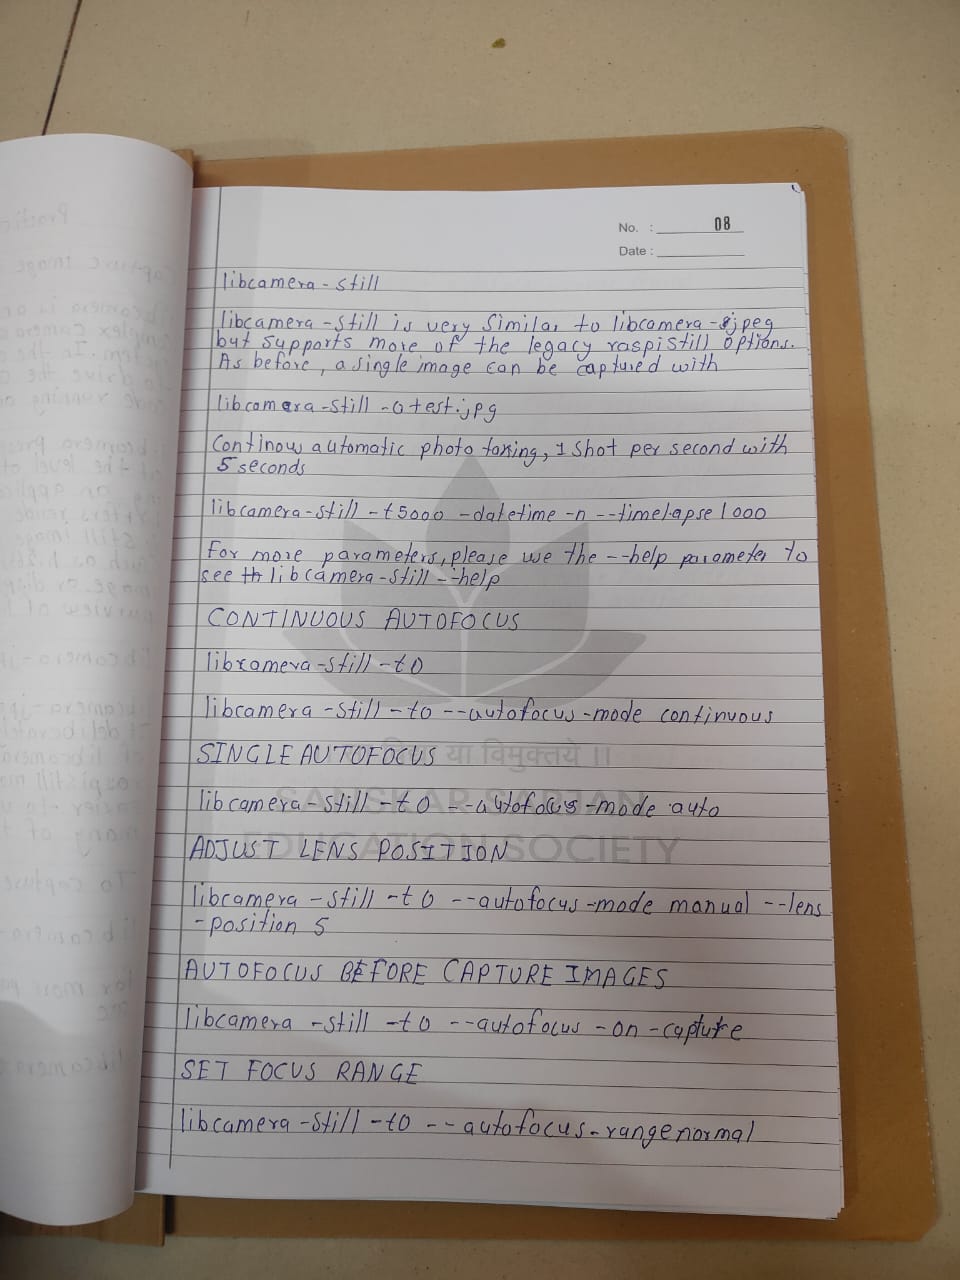 No. : 08
Date :
libcamera-still
libcamera-still is very similar to libcamera-jpeg
but supports more of the legacy raspistill options.
As before, a single image can be captured with
libcamera-still -o test.jpg
Continous automatic photo taking, 1 shot per second with
5 seconds
libcamera-still -t5000 -datetime -n --timelapse 1000
For more parameters, please use the --help parameter to
see th libcamera-still --help
CONTINUOUS AUTOFOCUS
libxamera-still -t0
libcamera-still -t0 --autofocus-mode continuous
SINGLE AUTOFOCUS
या विमुक्तये ॥
libcamera-still -t0 --autofocus-mode auto
ADJUST LENS POSITION
EDUCATION SOCIETY
libcamera-still -t0 --autofocus-mode manual --lens
-position 5
AUTOFOCUS BEFORE CAPTURE IMAGES
libcamera-still -t0 --autofocus-on-capture
SET FOCUS RANGE
libcamera-still -t0 --autofocus-range normal